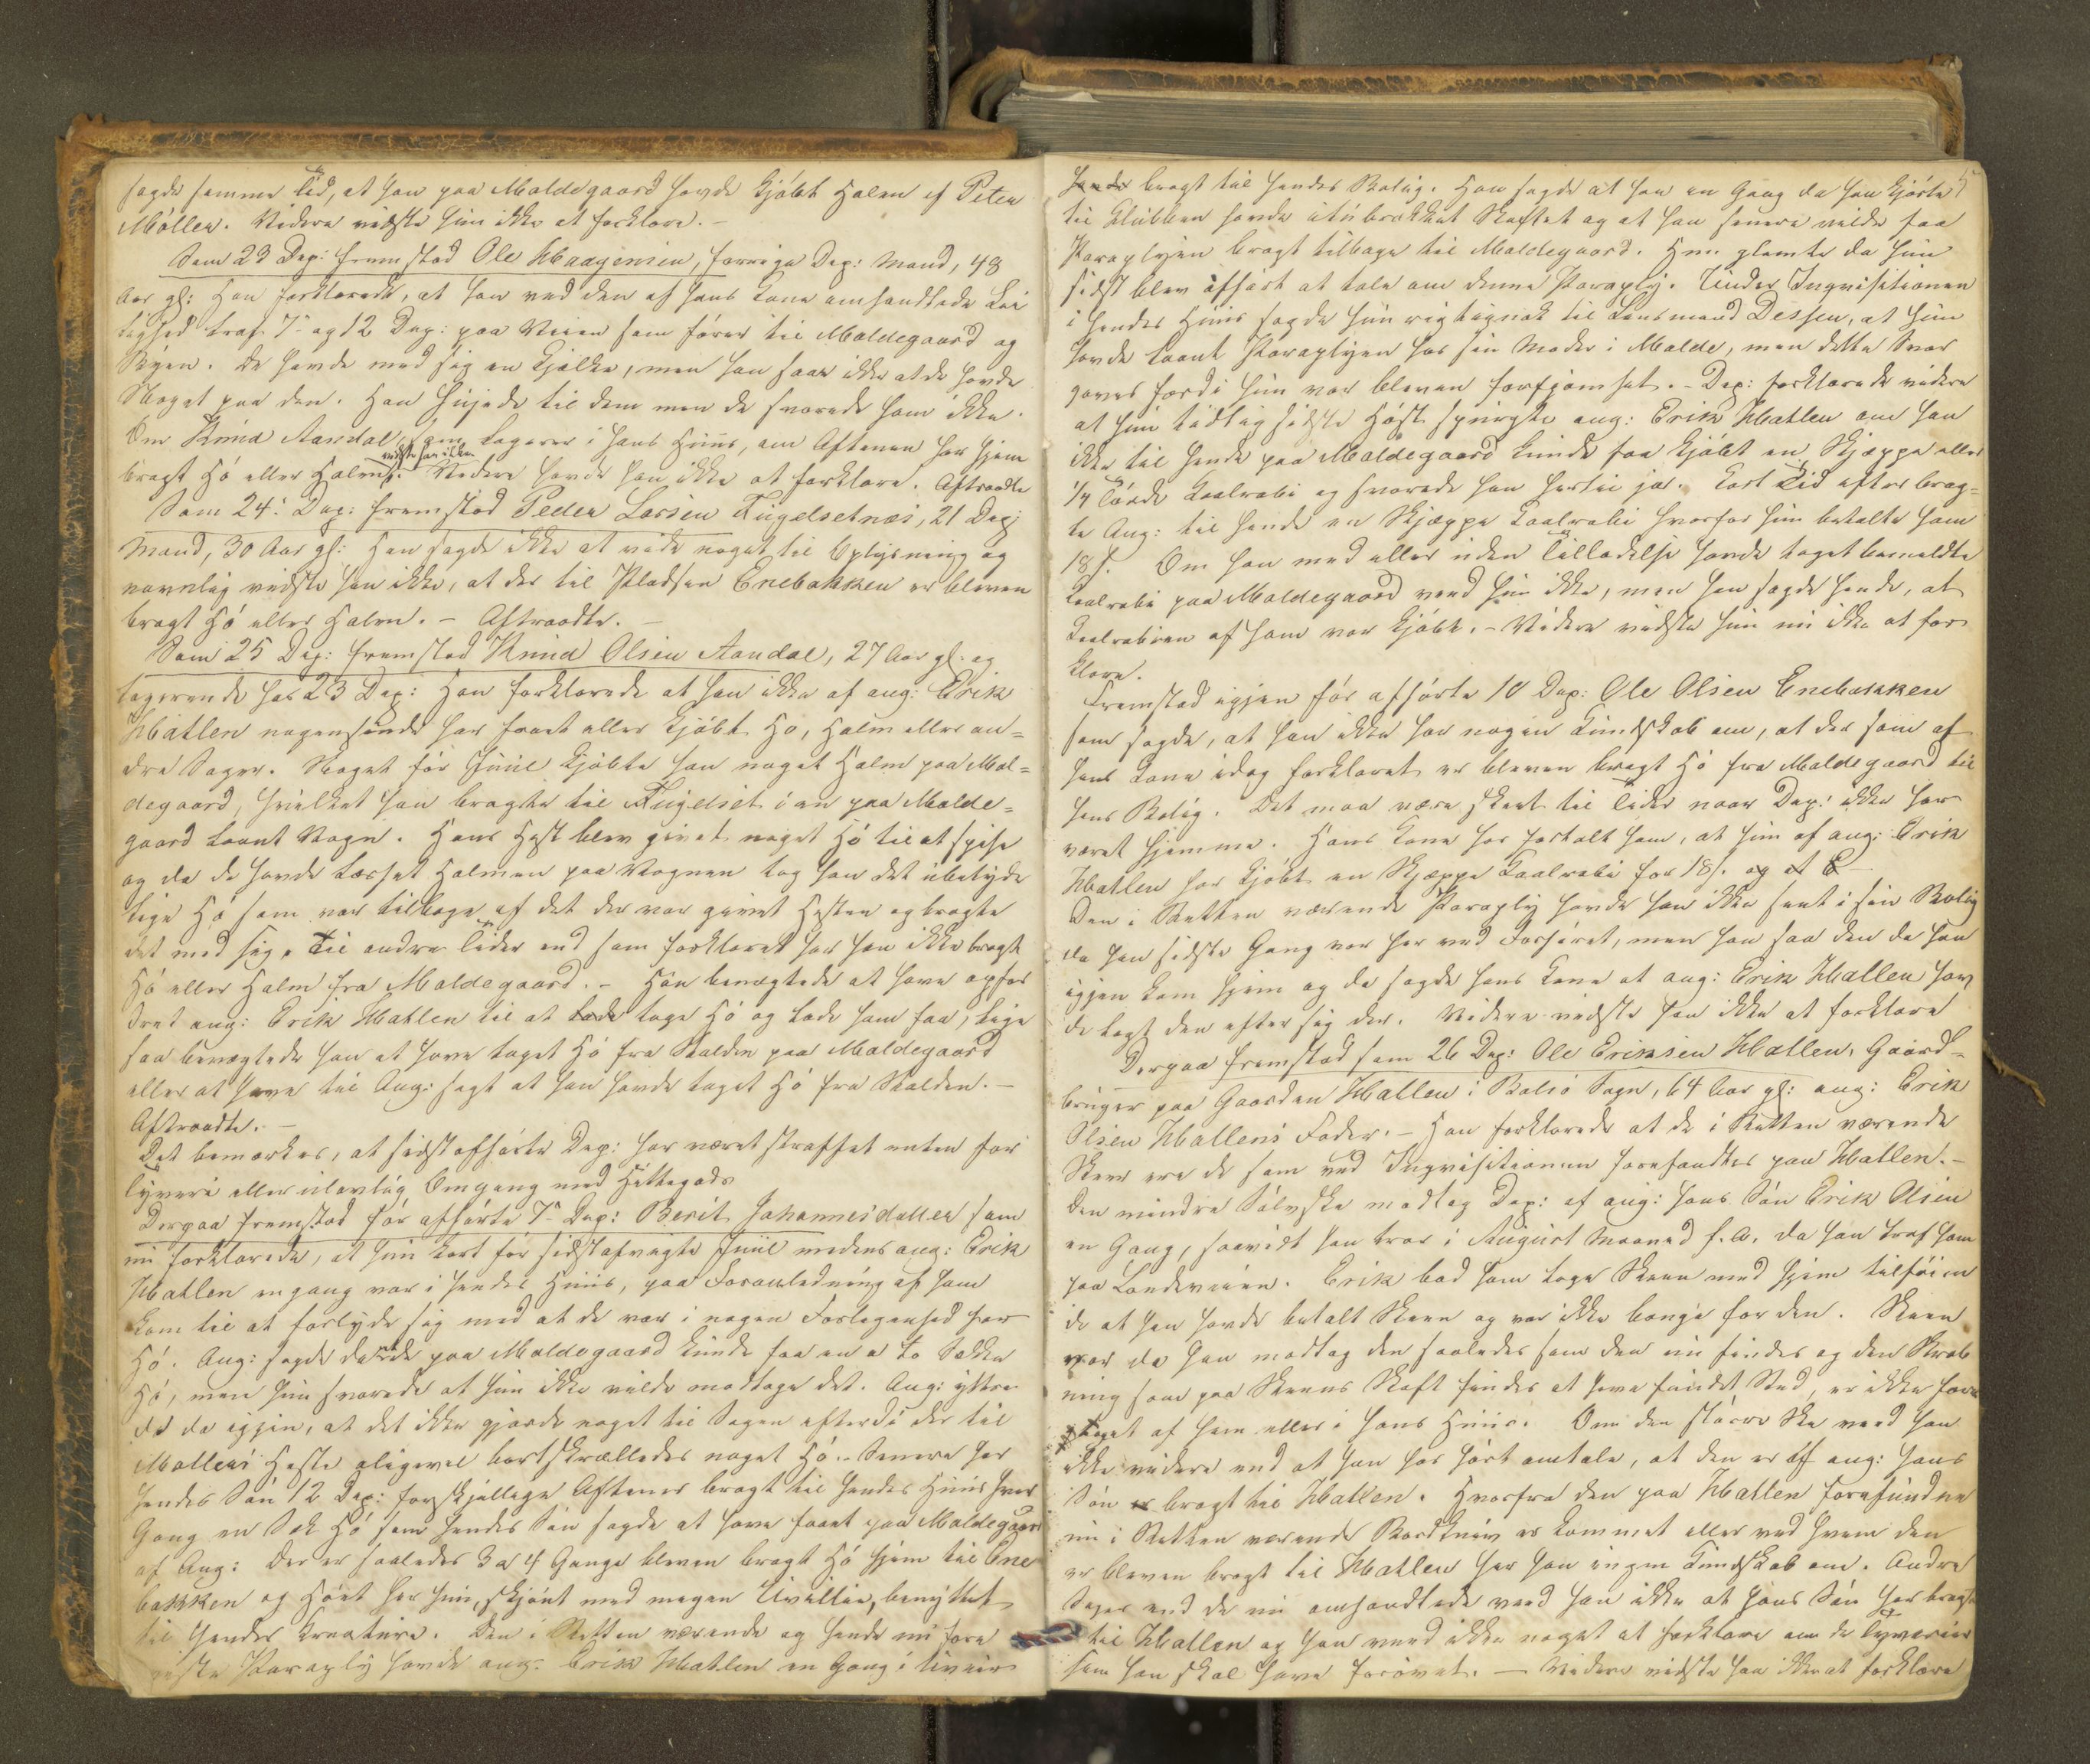 sagde samme Tid, at han paa Moldegaard havde kjöbt Halm af Peter
Möller. Videre vidste hun ikke at forklare. -
Som 23 Dep: fremstod Ole Haagensen, forrige Dep: Mand, 48
Aar gl: Han forklarede, at han ved den af hans Kone omhandlede Lei
lighed traf 7de og 12 Dep: paa Veien som förer til Moldegaard og
Byen. De havde med sig en Kjælke, men han saae ikke at de havde
Noget paa den. Han hujede til dem men de svarede ham ikke.
Om Knud Aandal, som logerer i hans Huus, om Aftenen har hjem
bragt Hö eller Halm vidste han ikke. Videre havde han ikke at forklare. Aftraadte
Som 24de Dep: fremstod Peder Larsen Fugelsetnæs, 21 Dep:
Mand, 30 Aar gl: Han sagde ikke at vide noget til Oplysning og
navnlig vidste han ikke, at der til Pladsen Enebakken er bleven
bragt Hö eller Halm. - Aftraadte. -
Som 25 Dep: fremstod Knud Olsen Aandal, 27 Aar gl. og
logerende hos 23 Dep: Han forklarede at han ikke af ang: Erik
Hatlen nogensinde har faaet eller kjöbt Hö, Halm eller an-
dre Sager. Noget för Juul kjöbte han noget Halm paa Mol-
degaard, hvilket han bragte til Fugelset i en paa Molde-
gaard laant Vogn. Hans Hest blev givet noget Hö til at spise
og da de havde læsset Halmen paa Vognen tog han det ubetyde
lige Hö som var tilbage af det der var givet Hesten og bragte
det med sig. Til andre Tider end som forklaret har han ikke bragt
Hö eller Halm fra Moldegaard. - Han benægtede at have opfor
dret ang: Erik Hatlen til at lade tage Hö og lade ham faa, lige
saa benægtede han at have taget Hö fra Stalden paa Moldegaard
eller at have til Ang: sagt at han havde taget Hö fra Stalden. -
Aftraadte. -
Det bemærkes, at sidstafhörte Dep: har været straffet enten for
Tyveri eller ulovlig Omgang med Hittegods
Derpaa fremstod för afhörte 7de Dep: Berit Johannesdatter som
nu forklarede, at hun kort för sidstafvigte Juul medens ang: Erik
Hatlen engang var i hendes Huus, paa Foranledning af ham
kom til at forlyde sig med at de var i nogen Forlegenhed for
Hö. Ang: sagde da at de paa Moldegaard kunde faa en a to Sække
Hö, men hun svarede at hun ikke vilde modtage det. Ang: yttre
de da igjen, at det ikke gjorde noget til Sagen efterdi der til
Möllers Heste aligevel bortskrælledes noget Hö. - Senere har
hendes Sön 12 Dep: forskjellige Aftener bragt til hendes Huus hver
Gang en Sæk Hö som hendes Sön sagde at have faaet paa Moldegaard
af Ang: Der er saaledes 3 a 4 Gange bleven bragt Hö hjem til Ene
bakken og Höet har hun, skjönt med megen Uvillie, benyttet
til hendes Kreature. Den i Retten værende og hende nu fore
viste Paraply havde ang: Erik Hatlen en Gang i Uveir
hende bragt til hendes Bolig. Han sagde at han en Gang da han kjörte
til Klubben havde itubrækket Skaftet og at han senere vilde faa
Paraplyen bragt tilbage til Moldegaard. Hun glemte da hun
sidst blev afhört at tale om denne Paraply. Under Inqvisitionen
i hendes Huus sagde hun rigtignok til Lensmand Dessen, at hun
havde laant Paraplyen hos sin Moder i Molde, men dette Svar
gaves fordi hun var bleven forfjamset. - Dep: forklarede videre
at hun tidlig sidste Höst spurgte ang: Erik Hatlen om han
ikke til hende paa Moldegaard kunde faa kjöbt en Skjæppe eller
1/4 Tönde Kaalrabi og svarede han hertil ja. Kort Tid efter brag-
te Ang: til hende en Skjæppe Kaalrabi hvorfor hun betalte ham
18 s. Om han med eller uden Tilladelse havde taget bemeldte
Kaalrabi paa Moldegaard veed hun ikke, men han sagde hende, at
Kaalrabien af ham var kjöbt. - Videre vidste hun nu ikke at for
klare.
Fremstod igjen för afhörte 10 Dep: Ole Olsen Enebakken
som sagde, at han ikke har nogen Kundskab om, at der som af
hans Kone idag forklaret er bleven bragt Hö fra Moldegaard til
hans Bolig. Det maa være skeet til Tider naar Dep: ikke har
været hjemme. Hans Kone har fortalt ham, at hun af ang: Erik
Hatlen har kjöbt en Skjæppe Kaalrabi for 18 s. og at E
Den i Retten værende Paraply havde han ikke seet i sin Bolig
da han sidste Gang var her ved Forhöret, men han saa den da han
igjen kom hjem og da sagde hans Kone at ang: Erik Hatlen hav
de lagt den efter sig der. Videre vidste han ikke at forklare
Derpaa fremstod som 26 Dep: Ole Eriksen Hatlen, Gaard-
bruger paa Gaarden Hatlen i Bolsö Sogn, 64 Aar gl: ang: Erik
Olsen Hatlens Fader. - Han forklarede at de i Retten værende
Skeer ere de som ved Inqvisitionen forefandtes paa Hatlen. -
Den mindre Sölvske modtog Dep: af ang: hans Sön Erik Olsen
en Gang, saavidt han tror i August Maaned f. A. da han traf ham
paa Landeveien. Erik bad ham tage Skeen med hjem tilföien
de at han havde betalt Skeen og var ikke bange for den. Skeen
var da han modtog den saaledes som den nu findes og den Skrab
ning som paa Skeens Skaft findes at have fundet Sted, er ikke fore
taget af ham eller i hans Huus. Om den större Ske veed han
ikke videre end at han har hört omtale, at den er af ang: hans
Sön er bragt til Hatlen. Hvorfra den paa Hatlen forefundne
nu i Retten værende Bordkniv er kommet eller ved hvem den
er bleven bragt til Hatlen har han ingen Kundskab om. Andre
Sager end de nu omhandlede veed han ikke at hans Sön har bragt
til Hatlen og han veed ikke noget at forklare om de Tyverier
som han skal have forövet. - Videre vidste han ikke at forklare